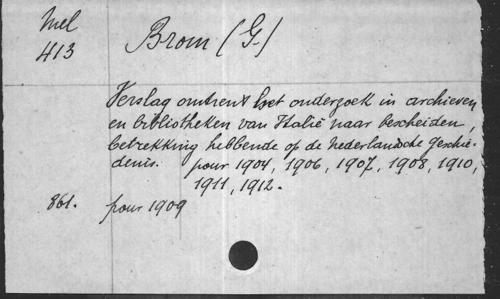 Mel
413
Brom (G.)
Verslag omtrent het onderzoek in archieven
en bibliotheken van Italië naar bescheiden,
betrekking hebbende op de nederlandsche geschie-
denis. pour 1904, 1906, 1907, 1908, 1910,
1911, 1912.
861. pour 1909